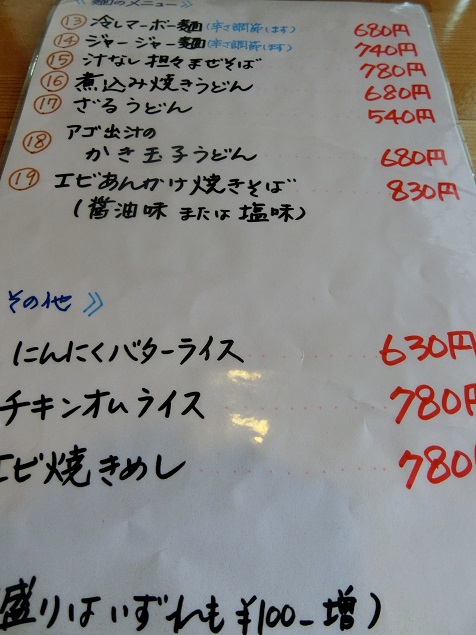 《 麺のメニュー 》
⑬ 冷しマーボー麺(辛さ調節します) 680円
⑭ ジャージャー麺(辛さ調節します) 740円
⑮ 汁なし担々まぜそば 780円
⑯ 煮込み焼きうどん 680円
⑰ ざるうどん 540円
⑱ アゴ出汁の
かき玉子うどん 680円
⑲ エビあんかけ焼きそば 830円
(醤油味 または 塩味)
その他 》
にんにくバターライス 630円
チキンオムライス 780円
エビ焼きめし 780
盛りはいずれも ¥100-増)